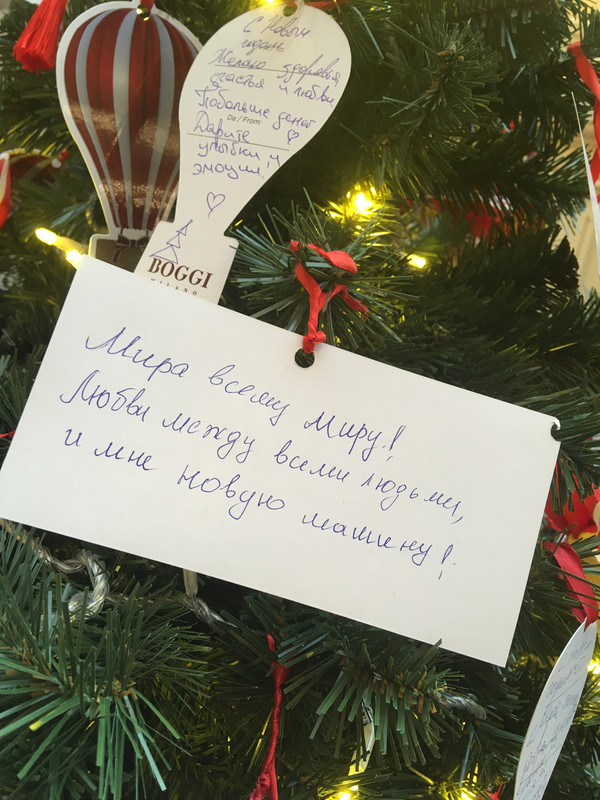 С Новым
годом
Желаю здоровья
счастья и любви
Побольше денег
Do / From
Дарите
улыбки и
эмоции!
BOGGI
MILANO
Мира всему миру!
Любви между всеми людьми,
и мне новую машину!